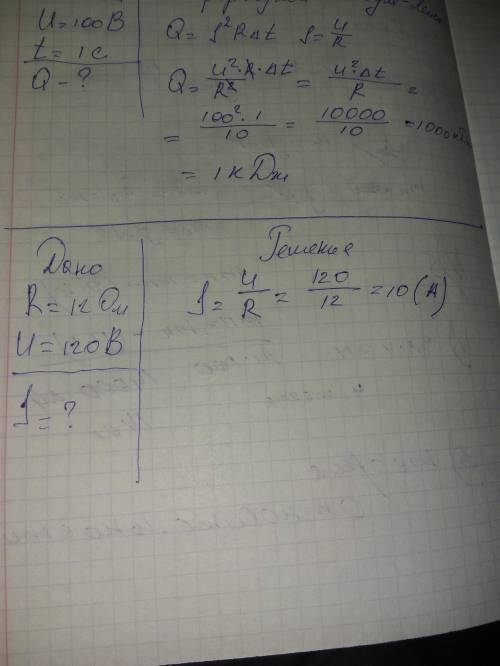 U = 100В
t = 1 с
Q - ?
Q = I²RΔt I = U/R
Q = U²·R·Δt/R² = U²·Δt/R =
= 100²·1/10 = 10000/10 = 1000
= 1 кДж
Дано
R = 12 Ом
U = 120В
I = ?
Решение
I = U/R = 120/12 = 10 (А)